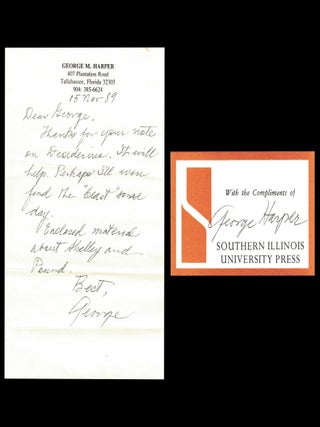 GEORGE M. HARPER
407 Plantation Road
Tallahassee, Florida 32303
904: 385-6624
15 Nov 89
Dear George,
Thanks for your note
on Desiderius. It will
help. Perhaps I'll even
find the "beast" some
day.
Enclosed material
about Shelley and
Pound.
Best,
George
With the Compliments of
George Harper
SOUTHERN ILLINOIS
UNIVERSITY PRESS